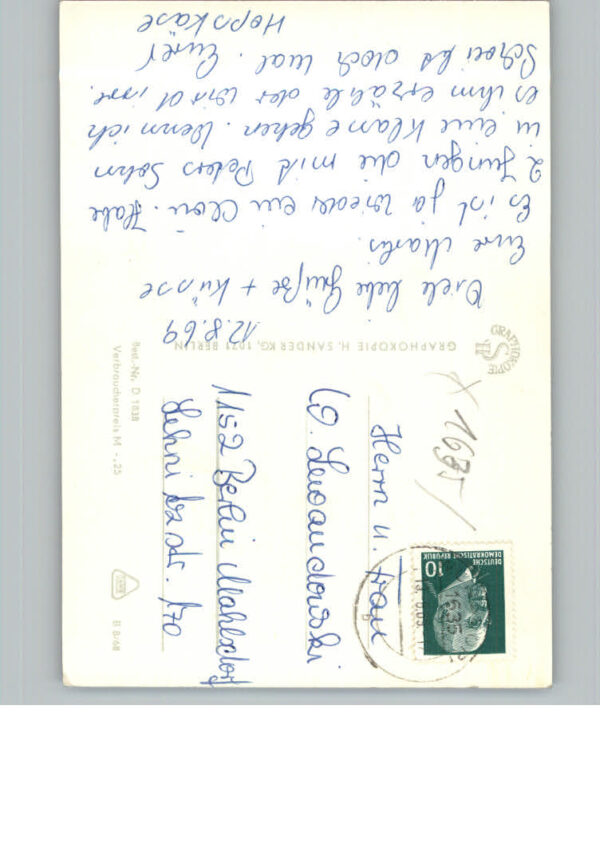 12.8.69
Viele liebe Grüße + Küsse
Eure
Es ist ja wieder ein Clou. Habe
2 Jungen die mit Peters Sohn
in eine Klasse gehen. Wenn ich
es ihm erzähle der wird irre.
Schreibt doch mal. Eure
Hopskäse
GRAPHOKOPIE H. SANDER KG, 1071 BERLIN
GRAPHOKOPIE
HS
Best.-Nr. D 1838
Verbraucherpreis M -,25
II 8/68
Herrn u. Frau
Lewandowski
1152 Berlin Mahlsdorf
170
DEUTSCHE
DEMOKRATISCHE REPUBLIK
10
1635